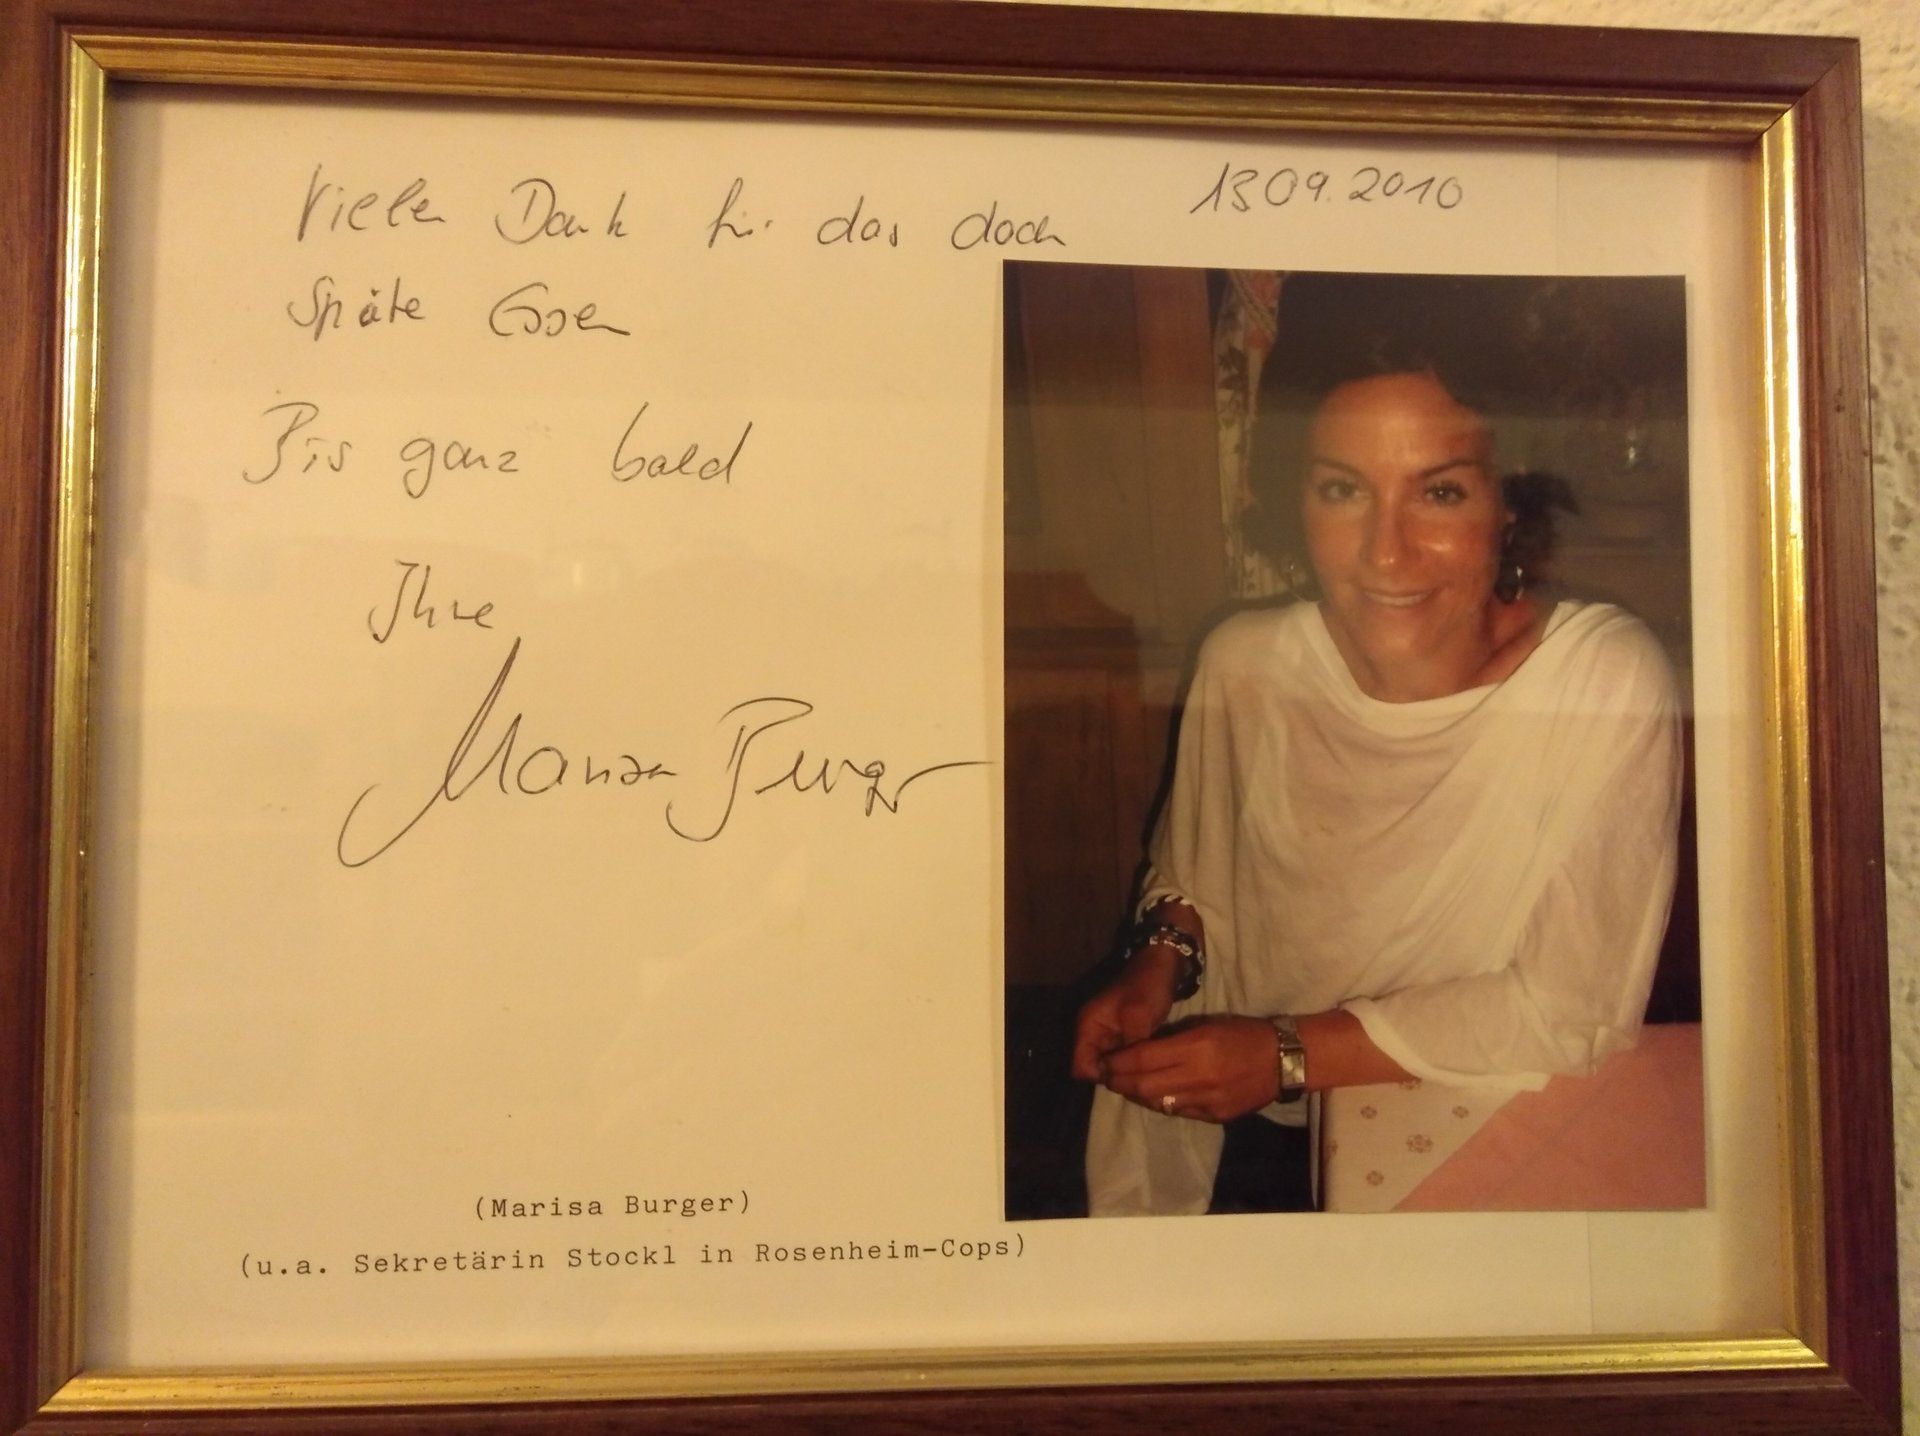 Vielen Dank für das doch
13.09.2010
späte Essen
Bis ganz bald
Ihre
Marisa Burger
(Marisa Burger)
(u.a. Sekretärin Stockl in Rosenheim-Cops)